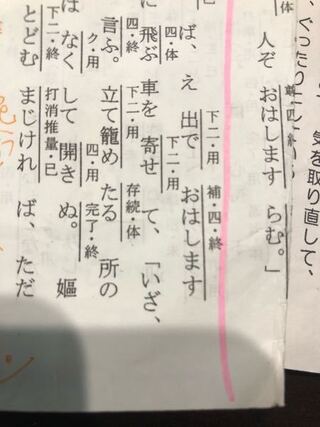 気を取り直して、
四・体
人ぞおはしますらむ。」
下二・用 補・四・終
ば、え出でおはします
四・体 下二・用
に飛ぶ車を寄せて、「いざ、
四・終 下二・用 存続・体
言ふ。立て籠めたる所の
ク・用 四・用 完了・終
はなくして開きぬ。嫗
下二・終 打消推量・已
とどむまじければ、ただ